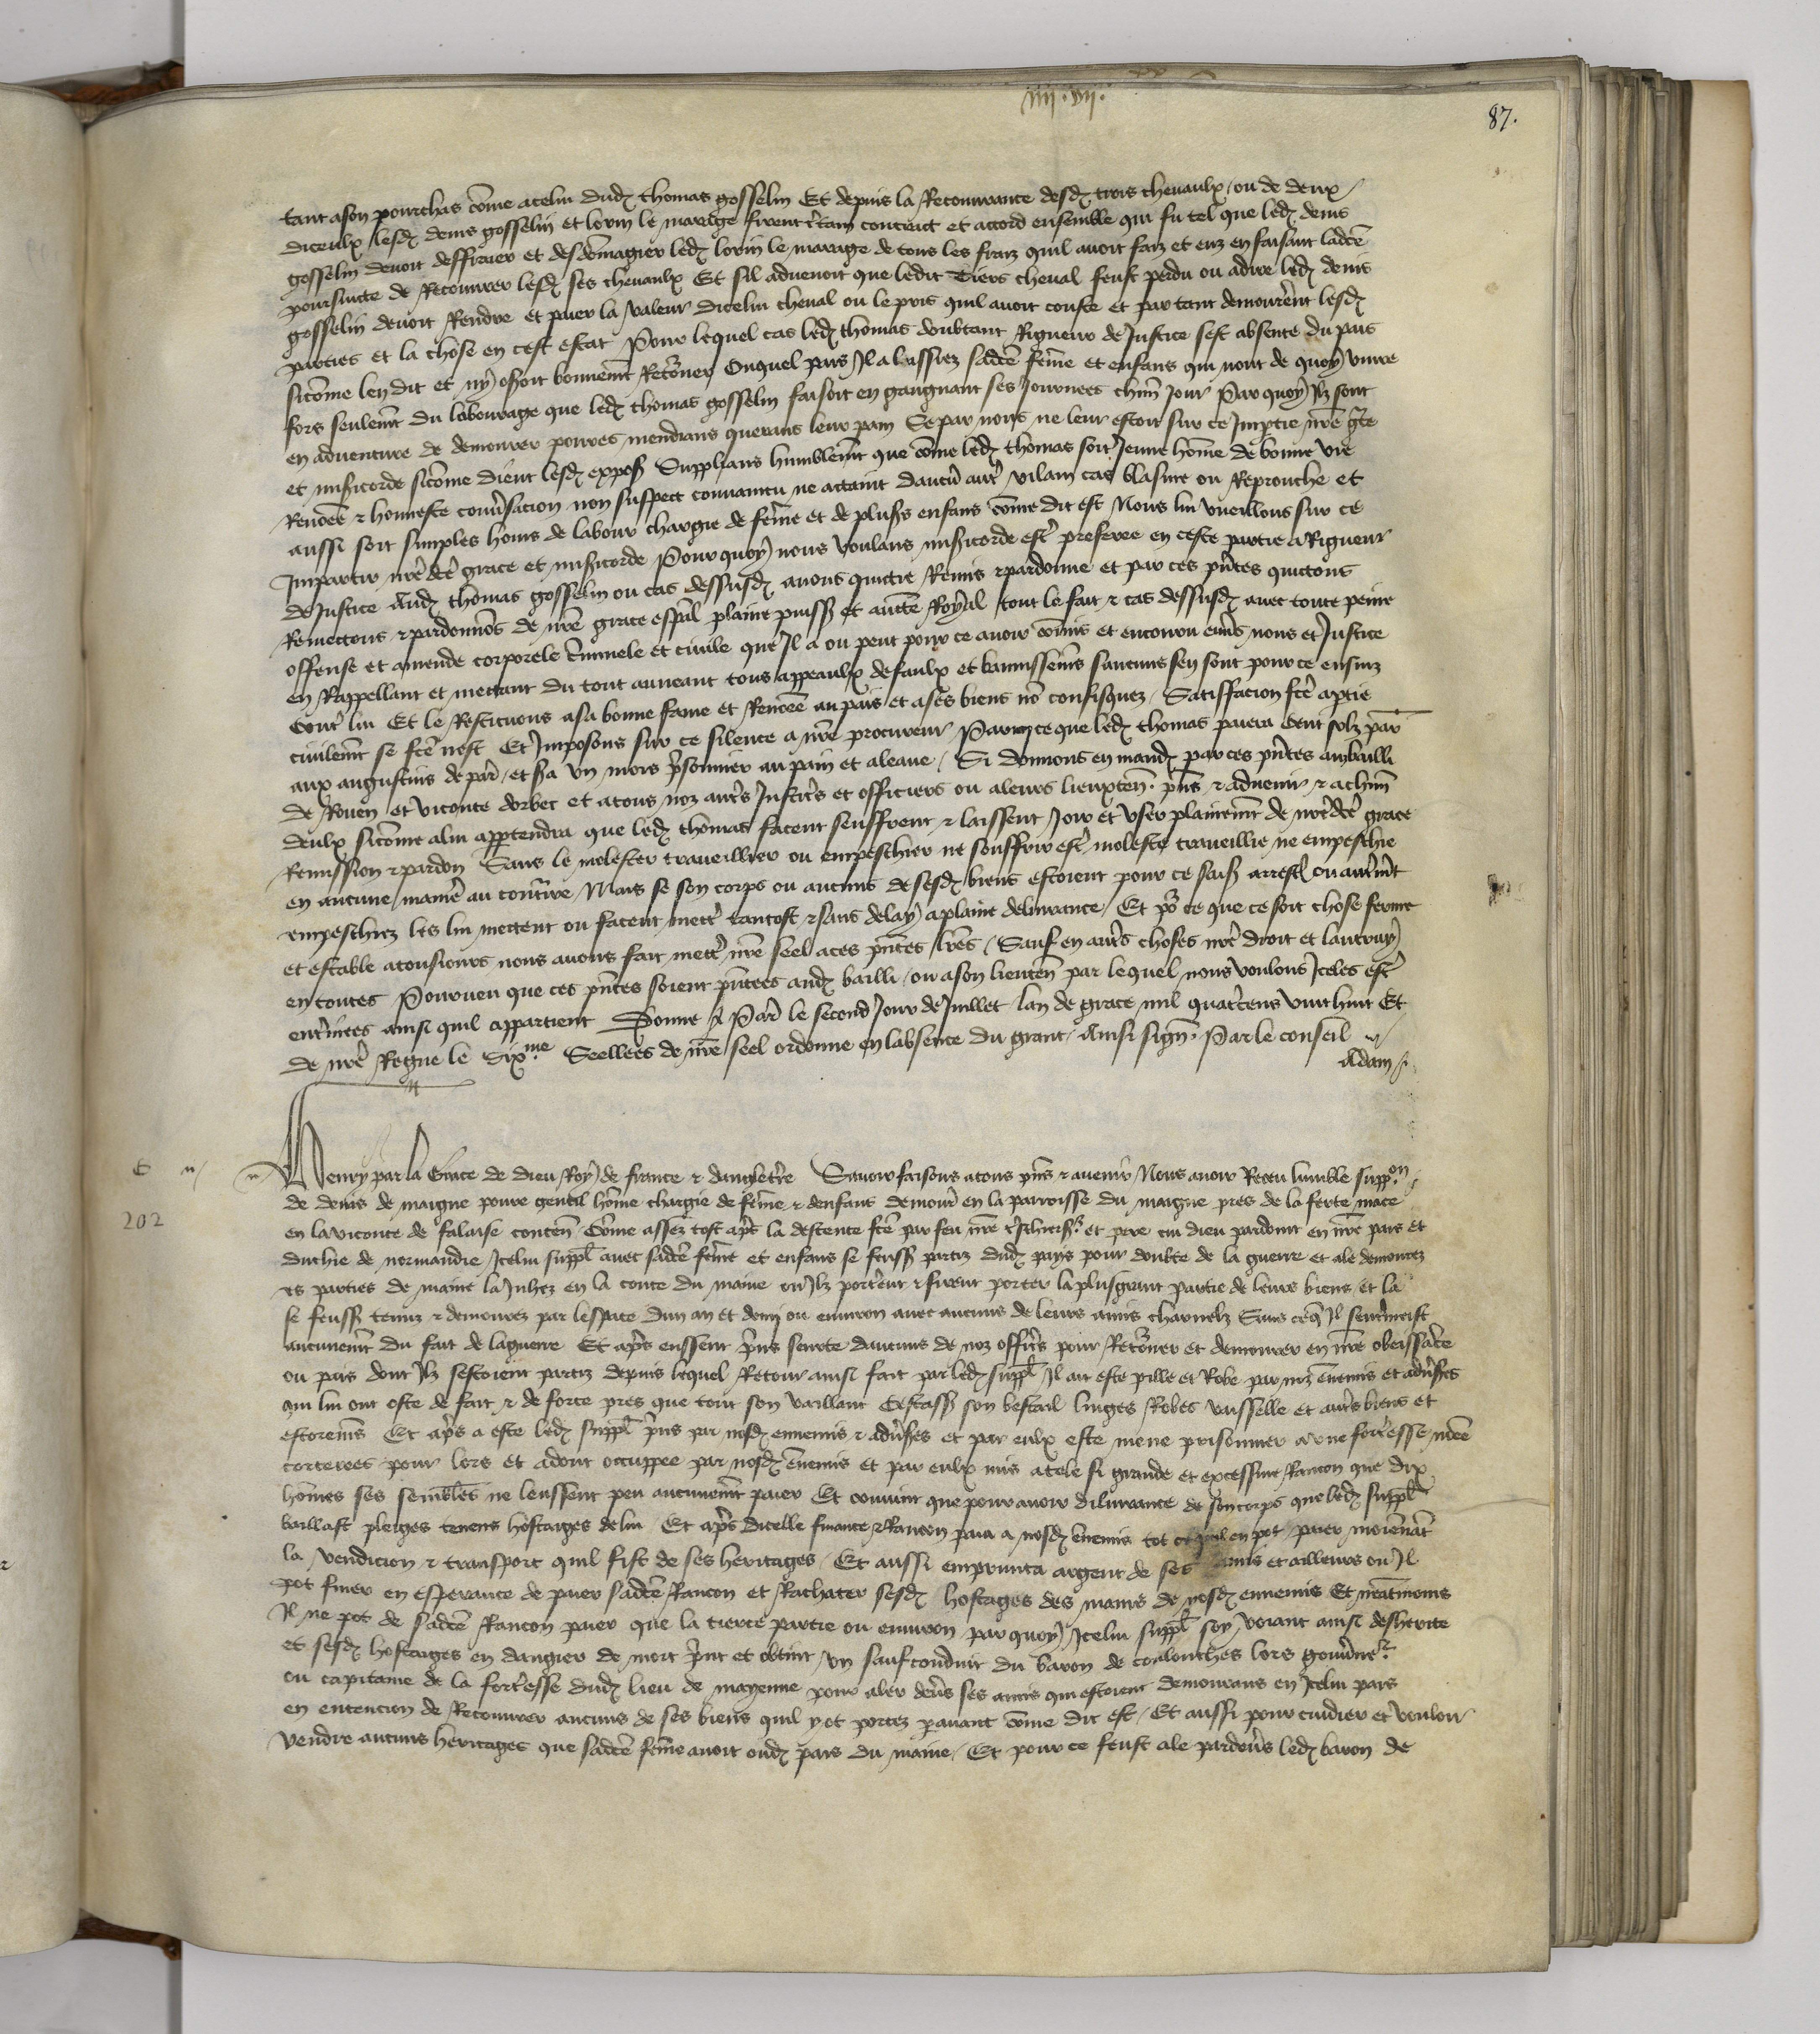 iiii.vii.
87.
tant a son pourchas cõme a celui dud. thomas gosselin Et depuis la Recouvrance desd. trois chevaulx / ou de deux /
diceulx lesd. denis gosselin et lorin le mariage firent c̃tain contract et accord ensemble qui fu tel que led. denis
gosselin devoit deffraier et desdomagier led. lorin le mariage de tous les fraiz quil avoit faiz et euz en faisant lad̃ce
poursuitte de Recouvrer lesd. ses chevaulx Et sil advenoit que ledit Tiers cheval feust perdu ou adire led. denis
gosselin devoit Rendre et paier la valeur dicelui cheval ou le pris quil avoit couste et par tant demourer̃ent lesd.
parties et la chose en cest estat Pour lequel cas led. thomas doubtant Rigueur de Justice sest absente du pais
sicõme len dit et ny osoit bonnem̃t Ret̃ourner Ouquel pais Il a laissiez sad̃ce fẽme et enfans qui nont de quoy vivre
fors seulem̃t du labourage que led. thomas gosselin faisoit en gaignant ses Journees chũn Jour Par quoy Ilz sont
en adventure de demourer povres mendians querans leur pain Se par nous ne leur estoit sur ce Imp̃tie nr̃e gr̃ce
et miĩcorde sicõme dient lesd. expos̃ Supplians humblem̃t que cõme led. thomas soit Jeune hõme de bonne vie
Renõmee & honneste conṽsacion non suspect convaincu ne actaint daucũ aut̃ vilain cas blasme ou Reprouche et
aussi soit simples homs de labour chargie de fẽme et de plus̃s enfans cõme dit est Nous lui vueillons sur ce
Impartir nr̃e d̃ce grace et miĩcorde Pour quoy nous voulans miĩcorde est̃ preferee en ceste partie a Rigueur
de Justice Aud. thomas gosselin ou cas dessusd. avons quictie Remis & pardonne et par ces p̃ntes quictons
Remectons & pardonnõs de nr̃e grace esp̃al plaine puiss̃ et auct̃e Royal tout le fait & cas dessusd. avec toute peine
offense et amende corporele c̃iminele et civile que Il a ou peut pour ce avoir cõmis et encouru enṽs nous et Justice
en Rappellant et mectant du tout au neant tous appeaulx defaulx et bannissem̃s saucuns sen sont pour ce ensuiz
Cont̃ lui Et le Restituons a sa bonne fame et Renõmee au pais et a ses biens nõ confisquez / Satisfacion fc̃e a ptie
civilem̃t se fc̃e nest Et Imposons sur ce silence a nr̃e procureur Parmi ce que led. thomas paiera Cent solz par̃
aux augustins de par̃ / et s̃a un mois p̃sonnier au pain et a leaue / Si donnons en mand. par ces p̃ntes au bailli
de Rouen et viconte dorbec et a tous noz aut̃s Justic̃s et officiers ou a leurs lieuxten̄. p̃ns & advenir & a chũn
deulx sicõme a lui app̃tendra que led. thomas facent seuffrent & laissent Joir et user plainem̃t de nr̃e d̃ce grace
Remission & pardon Sans le molester travaillier ou empeschier ne souffrir est̃ moleste travaillie ne empeschie
en aucune maniẽ au cont̃ire / Mais se son corps ou aucuns de sesd. biens estoient pour ce saisis̃ arrest̃ ou aut̃em̃t
empeschiez les lui mectent ou facent mect̃ tantost & sans delay a plaine delivrance / Et põ ce que ce soit chose ferme
et estable a tousiours nous avons fait mect̃ nr̃e seel a ces p̃ntes lr̃es / Sauf en aut̃s choses nr̃e droit et lautruy
en toutes Pourveu que ces p̃ntes soient p̃ntees aud. bailli / ou a son lieuten̄ par lequel nous voulons Iceles est̃
ent̃inees ainsi quil appartient Donne a Par̃ le second Jour de Juillet lan de grace mil quatr̃cens vint huit Et
de nr̃e Regne le Six.me Seellees de nr̃e seel ordonne en labsence du grant / Ainsi sign̄. Par le conseil
Adam
202
Henry par la Grace de dieu Roy de france & dangleter̃e Savoir faisons a tous p̃ns & avenir Nous avoir Receu lumble supp.on
de denis de maigne povre gentil hõme chargie de fẽme & denfans demour̃ en la parroisse du maigne pres de la ferte mace
en la viconte de falaise conten̄ Cõme assez tost ap̃s la descente fc̃e par feu nr̃e t̃schier s.r et pere cui dieu pardoint en nr̃e pais et
duchie de normandie Icelui suppl̃ avec sad̃ce fẽme et enfans se feuss̃ partiz dud. pays pour doubte de la guerre et ale demourez
es parties de maine la Juhez en la conte du maine ou Ilz port̃ent & firent porter la plus grant partie de leurs biens et la
se feuss̃ tenuz & demourez par lespace dun an et demi ou environ avec aucuns de leurs amis charnelz Sans ce q̃ Il sent̃meist
aucunem̃t du fait de la guerre Et ap̃s eussent p̃ns seurte daucuns de noz offic̃s pour Ret̃ourner et demourer en nr̃e obeissãce
ou pais dont Ilz sestoient partiz depuis lequel Retour ainsi fait par led. suppl̃ Il ait este pille et Robe par noz ẽnemis et adṽs̃es
qui lui ont oste de fait & de force pres que tout son vaillant Cestass̃ son bestail linges Robes vaisselle et aut̃s biens et
estorem̃s Et ap̃s a este led. suppl̃ p̃ns par nosd. ennemis & adṽs̃es et par eulx este mene prisonnier a une fort̃esse nõmee
torterees pour lors et adont occuppee par nosd. ẽnemis et par eulx mis a tele si grande et excessive Rancon que dix
hõmes ses semblẽs ne leussent peu aucunem̃t paier Et convint que pour avoir dilivrance de son corps que led. suppl̃
baillast pleiges tenens hostaiges de lui Et ap̃s dicelle finance & Rancon paia a nosd. ẽnemis tot ce quil en pot paier moiennãt
la vendicion & transport quil fist de ses heritages / Et aussi emprunta argent de ses amis et ailleurs ou Il
pot finer en esperance de paier sad̃ce Rancon et Rachater sesd. hostages des mains de nosd. ennemis Et neãtmoins
Il ne pot de sad̃ce Rancon paier que la tierce partie ou environ par quoy Icelui suppl̃ soy voiant ainsi desherite
et sesd. hostages en dangier de mort p̃int et obtint un saufconduit du baron de coulonches lors gouṽne.r
ou capitaine de la fort̃esse dud. lieu de mayenne pour aler deṽs ses amis qui estoient demourans en Icelui pais
en entencion de Recouvrer aucuns de ses biens quil y ot portez p̃avant cõme dit est / Et aussi pour cuidier et vouloir
vendre aucuns heritages que sad̃ce fẽme avoit oud. pais du maine / Et pour ce feust ale par deṽs led. baron de